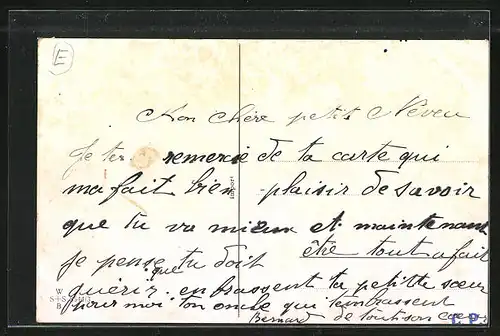 E
Mon chère petit Neveu
Je te remercie de ta carte qui
ma fait bien plaisir de savoir
que tu va mieux et maintenant
je pense que tu doit être tout a fait
guérir enbrassent ta petitte sœur
pour moi ton oncle qui t'embrassent
Bernard de tout son cœur
W
S+S
C.P.